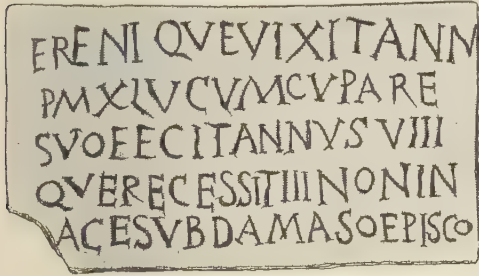 ERENI QVEVIXITANN
PMXLVCVMCVPARE
SVOEECITANNVSVIII
QVERECESSITIIINONIN
ACESVBDAMASOEPISCO